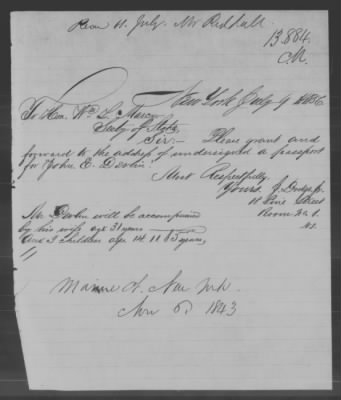 Recd 11. July. Mr Redfall
13.884.
New York July 9 1856
To Hon. Wm L. Marcy
Secty of State
Sir:— Please grant and
forward to the address of undersigned a passport
for "John E. Devlin"
Most Respectfully.
Yours. J. Dodge Jr.
Pine Street
Room No 1.
Mr. Devlin will be accompanied
by his wife age 31 years
And 3 children age 14. 11 & 5 years,
New York.
Nov 6. 1843